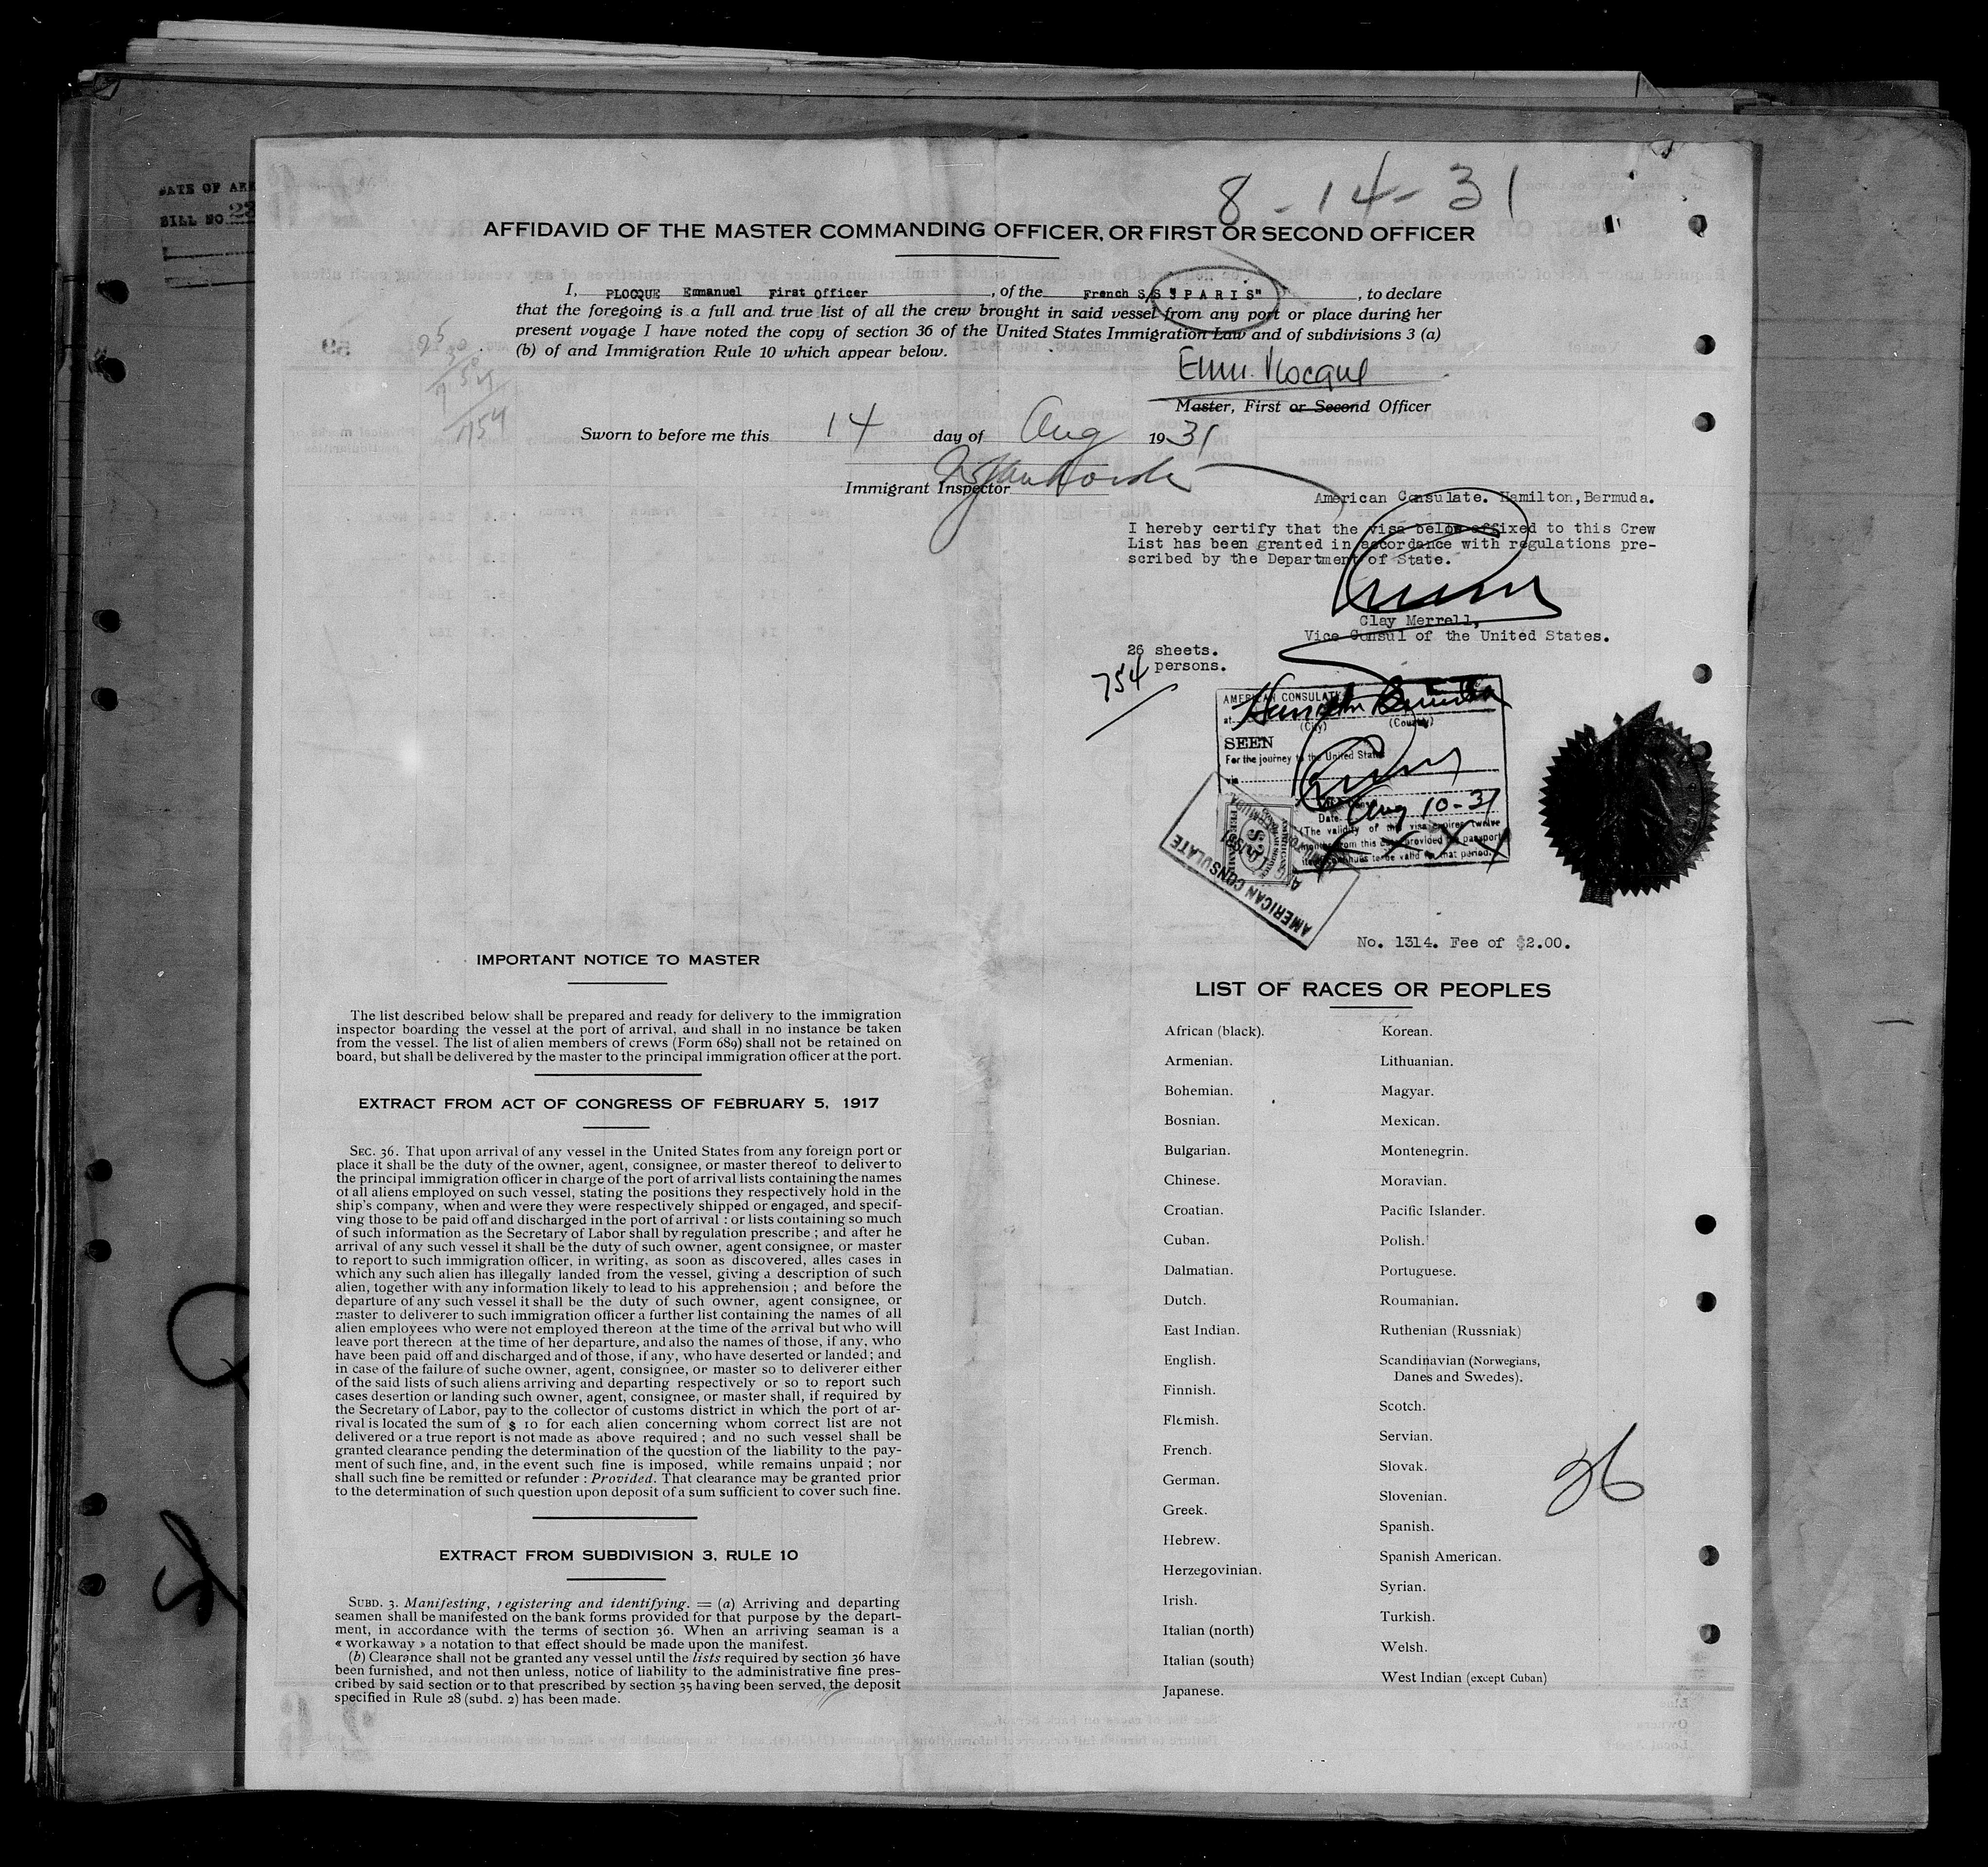 8-14-31
DATE OF
BILL NO
AFFIDAVID OF THE MASTER COMMANDING OFFICER, OR FIRST OR SECOND OFFICER
I, PLOCQUE Emmanuel First Officer , of the French S/S "PARIS" , to declare
that the foregoing is a full and true list of all the crew brought in said vessel from any port or place during her
present voyage I have noted the copy of section 36 of the United States Immigration Law and of subdivisions 3 (a)
(b) of and Immigration Rule 10 which appear below.
Emm. Plocque
Master, First or Second Officer
Sworn to before me this 14 day of Aug 1931
Immigrant Inspector
American Consulate. Hamilton, Bermuda.
I hereby certify that the visa below affixed to this Crew
List has been granted in accordance with regulations pre-
scribed by the Department of State.
Clay Merrell,
Vice Consul of the United States.
26 sheets.
754 persons.
AMERICAN CONSULATE
at Hamilton Bermuda
(City) (County)
SEEN
For the journey to the United States
via
Date Aug 10-31
(The validity of this visa expires twelve
months from this date provided the passport
continues to be valid for that period.)
AMERICAN CONSULATE
No. 1314. Fee of $2.00.
IMPORTANT NOTICE TO MASTER
The list described below shall be prepared and ready for delivery to the immigration
inspector boarding the vessel at the port of arrival, and shall in no instance be taken
from the vessel. The list of alien members of crews (Form 689) shall not be retained on
board, but shall be delivered by the master to the principal immigration officer at the port.
EXTRACT FROM ACT OF CONGRESS OF FEBRUARY 5, 1917
SEC. 36. That upon arrival of any vessel in the United States from any foreign port or
place it shall be the duty of the owner, agent, consignee, or master thereof to deliver to
the principal immigration officer in charge of the port of arrival lists containing the names
of all aliens employed on such vessel, stating the positions they respectively hold in the
ship's company, when and were they were respectively shipped or engaged, and specif-
ving those to be paid off and discharged in the port of arrival : or lists containing so much
of such information as the Secretary of Labor shall by regulation prescribe ; and after he
arrival of any such vessel it shall be the duty of such owner, agent consignee, or master
to report to such immigration officer, in writing, as soon as discovered, alles cases in
which any such alien has illegally landed from the vessel, giving a description of such
alien, together with any information likely to lead to his apprehension ; and before the
departure of any such vessel it shall be the duty of such owner, agent consignee, or
master to deliverer to such immigration officer a further list containing the names of all
alien employees who were not employed thereon at the time of the arrival but who will
leave port thereon at the time of her departure, and also the names of those, if any, who
have been paid off and discharged and of those, if any, who have deserted or landed ; and
in case of the failure of suche owner, agent, consignee, or master so to deliverer either
of the said lists of such aliens arriving and departing respectively or so to report such
cases desertion or landing such owner, agent, consignee, or master shall, if required by
the Secretary of Labor, pay to the collector of customs district in which the port of ar-
rival is located the sum of $ 10 for each alien concerning whom correct list are not
delivered or a true report is not made as above required ; and no such vessel shall be
granted clearance pending the determination of the question of the liability to the pay-
ment of such fine, and, in the event such fine is imposed, while remains unpaid ; nor
shall such fine be remitted or refunder : Provided. That clearance may be granted prior
to the determination of such question upon deposit of a sum sufficient to cover such fine.
EXTRACT FROM SUBDIVISION 3, RULE 10
SUBD. 3. Manifesting, registering and identifying. = (a) Arriving and departing
seamen shall be manifested on the bank forms provided for that purpose by the depart-
ment, in accordance with the terms of section 36. When an arriving seaman is a
« workaway » a notation to that effect should be made upon the manifest.
(b) Clearance shall not be granted any vessel until the lists required by section 36 have
been furnished, and not then unless, notice of liability to the administrative fine pres-
cribed by said section or to that prescribed by section 35 having been served, the deposit
specified in Rule 28 (subd. 2) has been made.
LIST OF RACES OR PEOPLES
African (black).
Armenian.
Bohemian.
Bosnian.
Bulgarian.
Chinese.
Croatian.
Cuban.
Dalmatian.
Dutch.
East Indian.
English.
Finnish.
Flemish.
French.
German.
Greek.
Hebrew.
Herzegovinian.
Irish.
Italian (north)
Italian (south)
Japanese.
Korean.
Lithuanian.
Magyar.
Mexican.
Montenegrin.
Moravian.
Pacific Islander.
Polish.
Portuguese.
Roumanian.
Ruthenian (Russniak)
Scandinavian (Norwegians,
Danes and Swedes).
Scotch.
Servian.
Slovak.
Slovenian.
Spanish.
Spanish American.
Syrian.
Turkish.
Welsh.
West Indian (except Cuban)
26